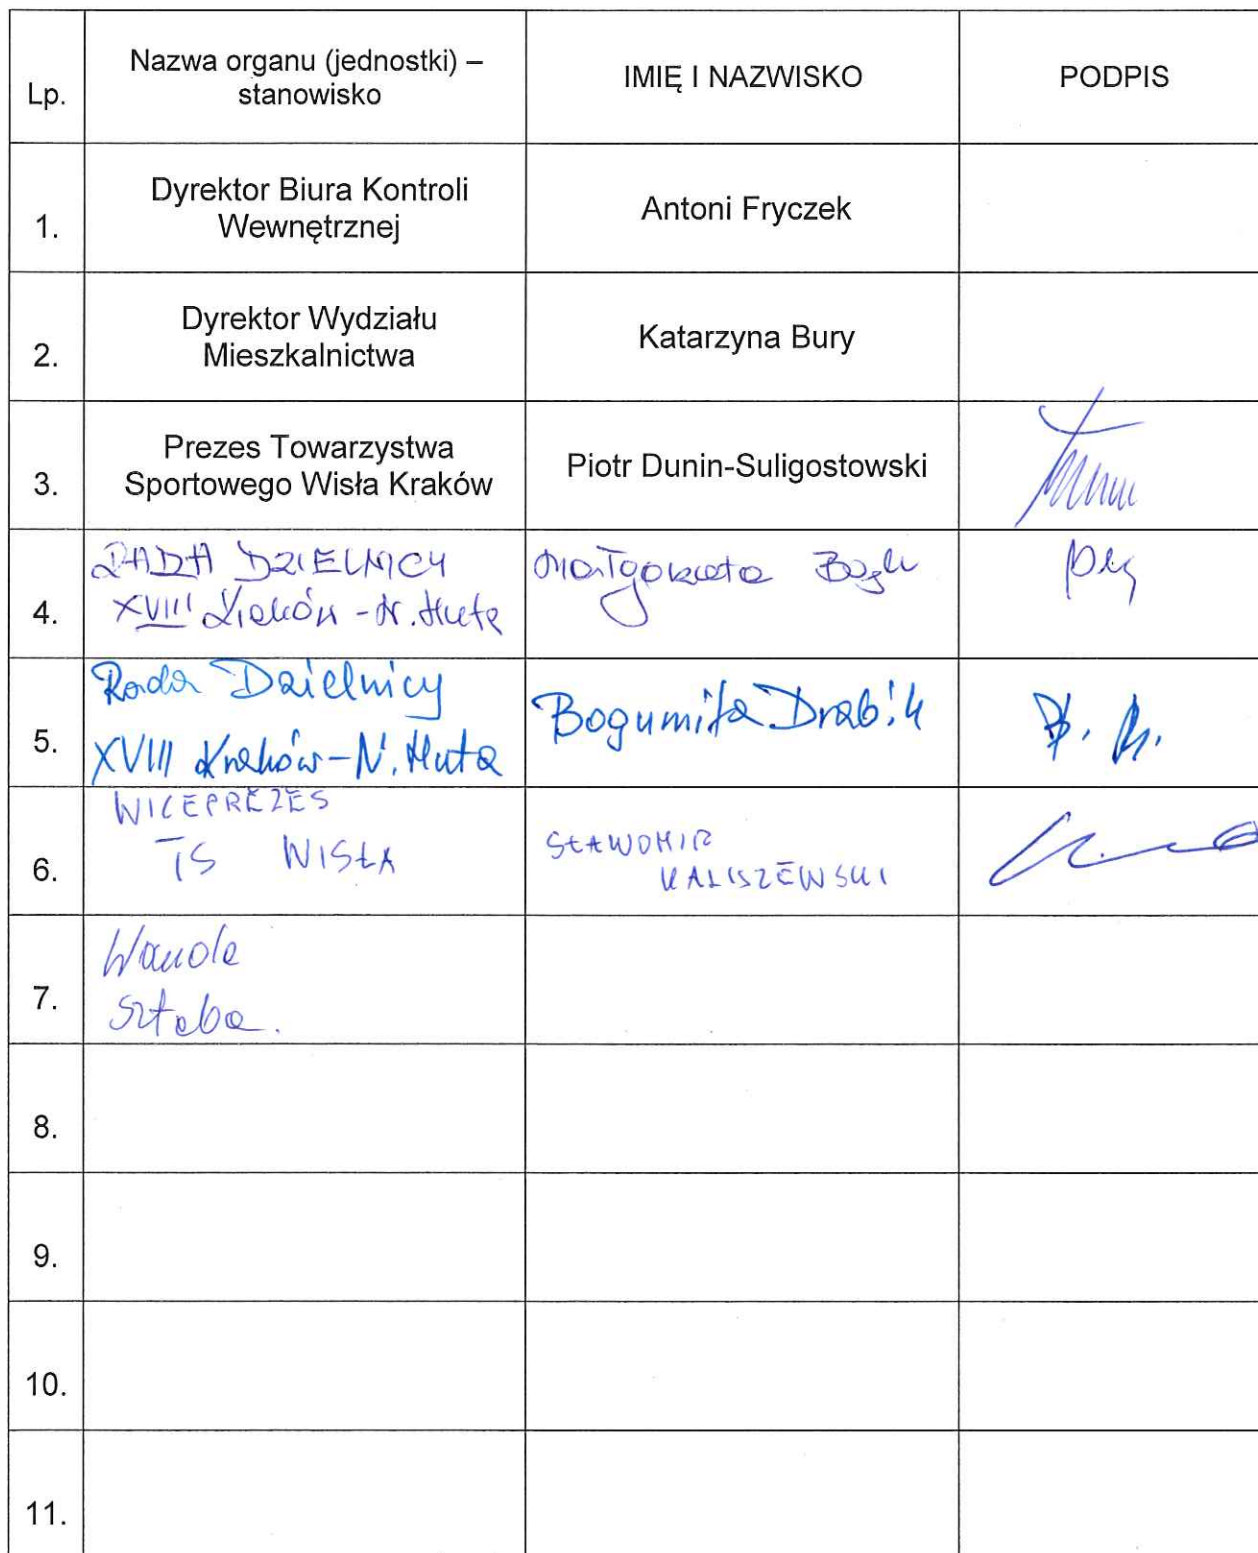 Lp.
Nazwa organu (jednostki) –
stanowisko
IMIĘ I NAZWISKO
PODPIS
1.
Dyrektor Biura Kontroli
Wewnętrznej
Antoni Fryczek
2.
Dyrektor Wydziału
Mieszkalnictwa
Katarzyna Bury
3.
Prezes Towarzystwa
Sportowego Wisła Kraków
Piotr Dunin-Suligostowski
4.
RADA DZIELNICY
XVIII Kraków - N. Huta
Małgorzata
5.
Rada Dzielnicy
XVIII Kraków - N. Huta
Bogumiła Drabik
6.
WICEPREZES
TS WISŁA
SŁAWOMIR
KALISZEWSKI
7.
Wanda
Sztaba.
8.
9.
10.
11.